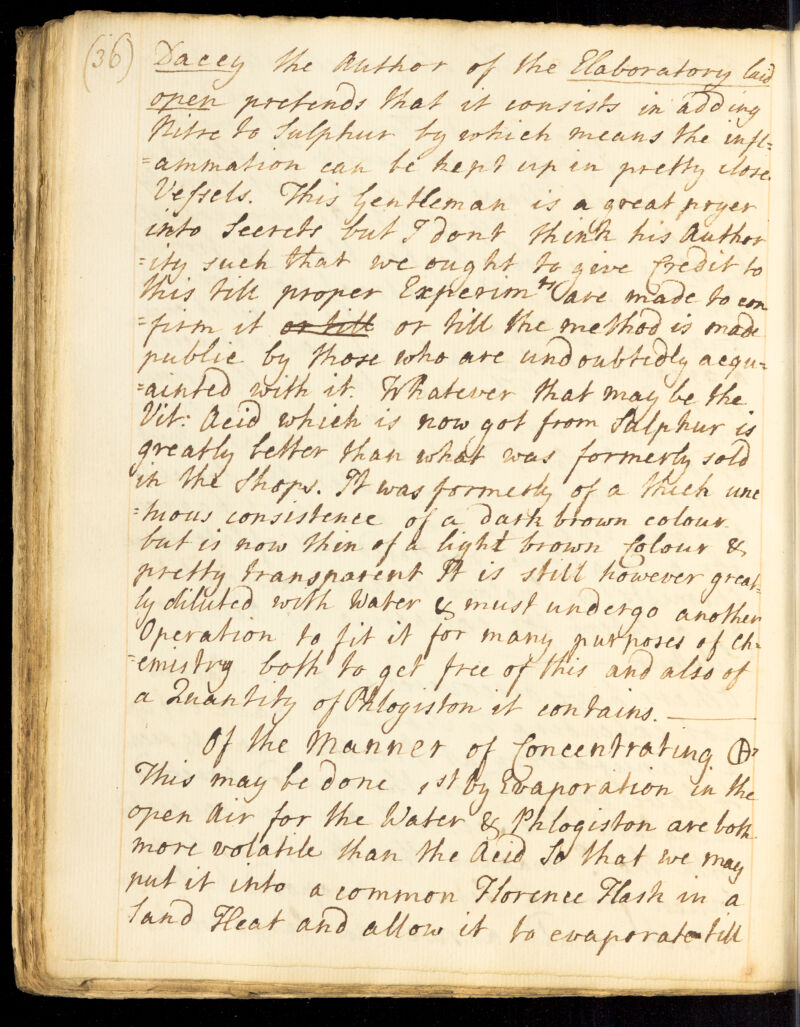 (36) Dacey the Author of the Elaboratory laid
open pretends that it consists in adding
Nitre to Sulphur by which means the infl=
=ammation can be kept up in pretty close
Vessels. This Gentleman is a great pryer
into Secrets but I dont think his Author
=ity such that we ought to give Credit to
this till proper Experimts are made to con
=firm it or till or till the method is made
public by those who are undoubtedly acqu=
=ainted with it. Whatever that may be the
Vit: Acid which is now got from Sulphur is
greatly better than what was formerly sold
in the Shops. It was formerly of a thick unc
=tuous consistence of a dark brown colour
but is now thin of a light brown Colour &
pretty transparent It is still however great=
ly diluted with Water & must undergo another
Operation to fit it for many purposes of Ch=
=emistry both to get free of this and also of
a Quantity of Phlogiston it contains.
Of the Manner of Concentrating
This may be done 1st by Evaporation in the
open Air for the Water & Phlogiston are both
more volatile than the Acid So that we may
put it into a common Florence Flask in a
Sand Heat and allow it to evaporate till